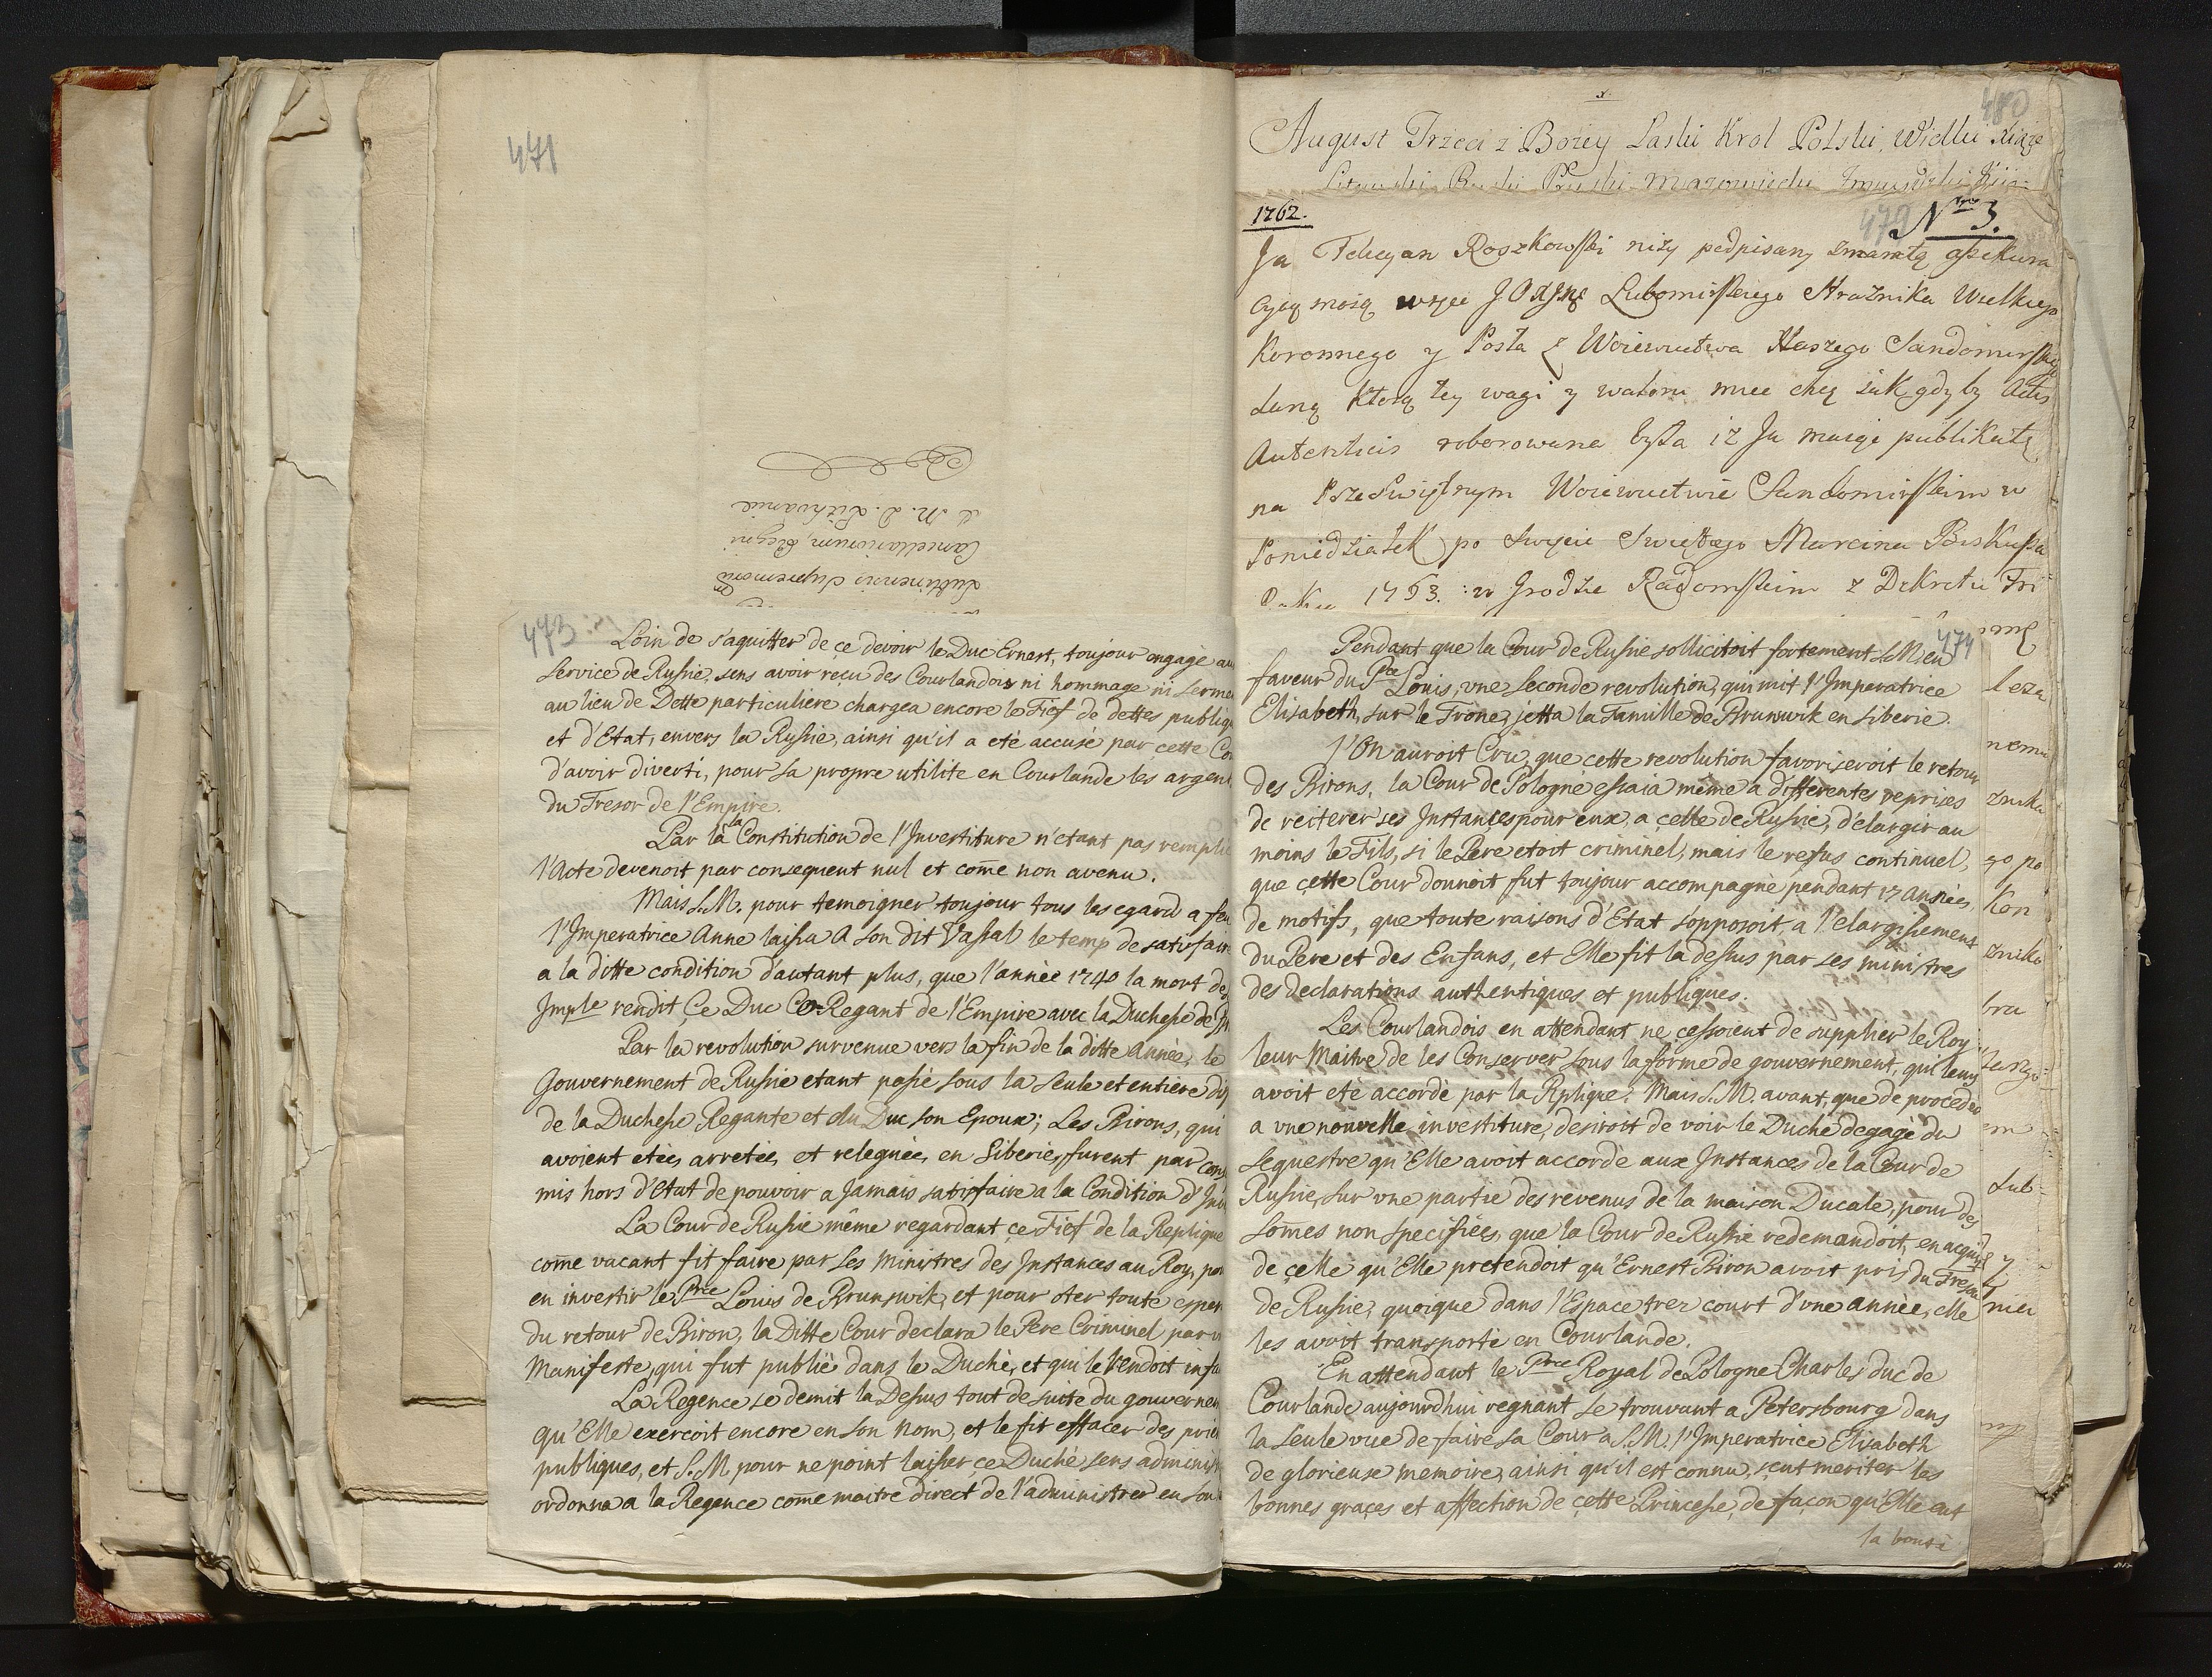 471
Lublinensis Supremoru
Cancellariorum, Regni
& M. D. Lithvaniæ
473
Loin de s'aquitter de ce devoir le Duc Ernest, toujour engagé au
Service de Russie, sens avoir reçu des Courlandois ni hommage ni serme
au lieu de Dette particuliere chargea encore le Fief de dettes publiq
et d'Etat, envers la Russie, ainsi qu'il a eté accusé par cette Co
d'avoir diverti, pour sa propre utilite en Courlande les argen
du Tresor de l'Empire.
Par là la Constitution de l'Investiture n'etant pas remplie
l'Acte devenoit par consequent nul et com̄e non avenu.
Mais S. M. pour temoigner toujour tous les egard a feu
l'Imperatrice Anne laissa A son dit Vassal le temp de satisfair
a la ditte condition d'autant plus, que l'année 1740 la mort de
Imple rendit Ce Duc Co-Regant de l'Empire avec la Duchesse de
Par la revolution survenue vers la fin de la ditte Année, le
Gouvernement de Russie etant passé sous la seule et entiere dis
de la Duchesse Regante et du Duc son Epoux; Les Birons, qui
avoient etée arretée et releguée en Siberie, furent par cons
mis hors d'Etat de pouvoir a Jamais satisfaire a la Condition d'Inv
La Cour de Russie même regardant ce Fief de la Replique
com̄e vacant fit faire par Ses Ministres des Instances au Roy, po
en investir le Pnce Louis de Brunswik, et pour oter toute esper
du retour de Biron, la Ditte Cour declara le Pere Criminel par u
Manifeste, qui fut publié dans le Duché, et qui le Rendoit infa
La Regence se demit la Dessus tout de suite du gouverne
qu'Elle exercoit encore en son Nom, et le fit effacer des prie
publiques, et S. M. pour ne point laisser ce Duché sens administ
ordonna a la Regence com̄e maitre direct de l'administrer en son
480
August Trzeci z Bozey Laski Krol Polski, Wielki Xiąze
Litewski Ruski Pruski Mazowiecki Zmudzki Kiio
1762.
479 Nro 3.
Ja Felicyan Roszkowski nizy podpisany
cyią moią JOXJmc Lubomirskiego Strażnika Wielkiego
Koronnego y Posła z Woiewuctwa Naszego Sandomirskie
daną Ktorą tey wagi y waloru miec chcę iak gdyby Actis
Autenticis roborowana była iz Ja maiąc publikatę
na Przeświętnym Woiewuctwie Sandomirskim w
Poniedziałek po Swięcie Swiętego Marcina Biskupa
Roku 1763. w Grodzie Radomskim z Dekretu Tri
474
Pendant que la Cour de Russie sollicitoit fortement S. M. en
faveur du Pce Louis, une seconde revolution, qui mit l'Imperatrice
Elisabeth, sur le Trône, jetta la Famille de Brunswik en Siberie.
l'On auroit Cru, que cette revolution favoriseroit le retour
des Birons, la Cour de Pologne essaia même a differentes reprises
de reiterer ses Instances pour eux, a celle de Russie, d'elargir au
moins le Fils, si le Pere etoit criminel, mais le refus continuel,
que cette Cour donnoit fut toujour accompagné pendant 17 Années
de motifs, que toute raisons d'Etat s'opposoit, a l'elargissement
du Pere et des Enfans, et Elle fit la dessus par ses ministres
des declarations authentiques et publiques.
Les Courlandois en attendant ne cessoient de supplier le Roy
leur Maitre de les Conserver sous la forme de gouvernement, qui leur
avoit eté accordé par la Rplique. Mais S. M. avant, que de proceder
a une nouvelle investiture, desiroit de voir le Duché degagé du
sequestre qu'Elle avoit accordé aux Instances de la Cour de
Russie, sur une partie des revenus de la maison Ducale, pour des
som̄es non specifiées, que la Cour de Russie redemandoit, en acquit
de celle qu'Elle pretendoit qu'Ernest Biron avoit pris du Tresor
de Russie, quoique dans l'Espace trez court d'une année, elle
les avoit transporté en Courlande.
En attendant le Pnce Royal de Pologne Charles duc de
Courlande aujourd'hui regnant se trouvant a Petersbourg dans
la seule vue de faire sa Cour a S. M. l'Imperatrice Elisabeth
de glorieuse memoire, ainsi qu'il est connu, sçut meriter les
bonnes graçes et affection de cette Princesse, de façon qu'Elle eut
la bonté
leza
nemu
znika
go po
Kon
znika
bra
em
Lub
nia